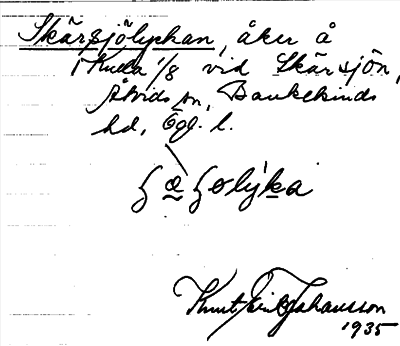 Skärsjölyckan, åker å
1 Kulla 1/8 vid Skärsjön,
Åtvids sn, Bankekinds
hd, Ögl. l.
Knut Erik Johansson
1935